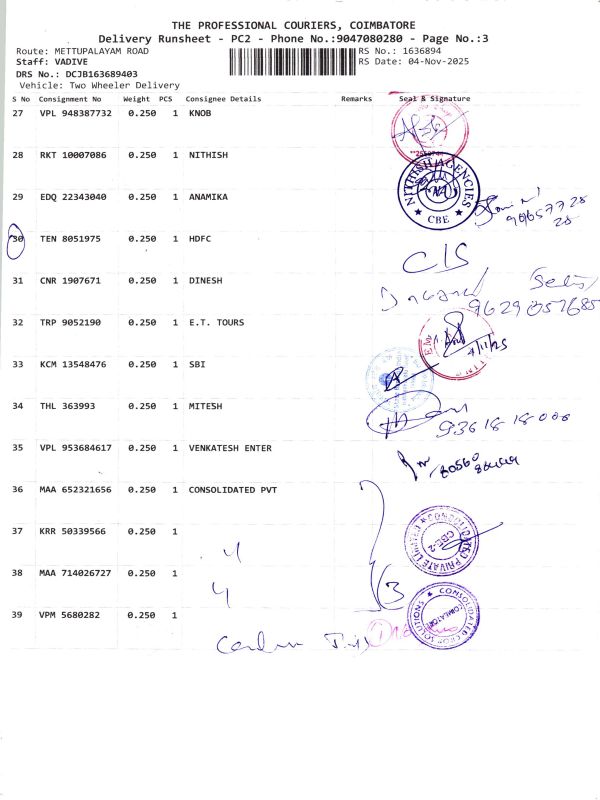 THE PROFESSIONAL COURIERS, COIMBATORE
Delivery Runsheet - PC2 - Phone No.:9047080280 - Page No.:3
Route: METTUPALAYAM ROAD RS No.: 1636894
Staff: VADIVE RS Date: 04-Nov-2025
DRS No.: DCJB163689403
Vehicle: Two Wheeler Delivery
S No Consignment No Weight PCS Consignee Details Remarks Seal & Signature
27 VPL 948387732 0.250 1 KNOB
28 RKT 10007086 0.250 1 NITHISH
NITHISH AGENCIES
★ CBE ★
29 EDQ 22343040 0.250 1 ANAMIKA
30 TEN 8051975 0.250 1 HDFC
31 CNR 1907671 0.250 1 DINESH
9629057685
32 TRP 9052190 0.250 1 E.T. TOURS
4/11/25
33 KCM 13548476 0.250 1 SBI
34 THL 363993 0.250 1 MITESH
35 VPL 953684617 0.250 1 VENKATESH ENTER
36 MAA 652321656 0.250 1 CONSOLIDATED PVT
CONSOLIDATED PRIVATE LIMITED
CBE-2
37 KRR 50339566 0.250 1
38 MAA 714026727 0.250 1
3
39 VPM 5680282 0.250 1
CONSOLIDATED CROP SOLUTIONS
COIMBATORE